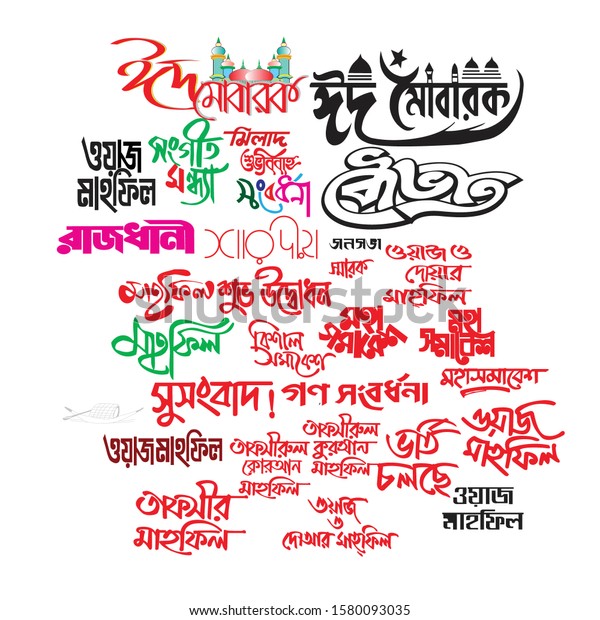 ঈদ মোবারক
ঈদ মোবারক
ওয়াজ
মাহফিল
সংগীত
সন্ধ্যা
মিলাদ
শুভবিবাহ
সংবর্ধনা
রাজধানী
শারদীয়
জনসভা
স্মারক
ওয়াজ ও
দোয়ার
মাহফিল
মাহফিল
শুভ উদ্বোধন
মাহফিল
বিশাল
সমাবেশ
মহা
সমাবেশ
মহা
সমাবেশ
মহাসমাবেশ
সুসংবাদ!
গণ সংবর্ধনা
ওয়াজমাহফিল
তাফসীরুল
কোরআন
মাহফিল
তাফসীরুল
কুরআন
মাহফিল
ভর্তি
চলছে
ওয়াজ
মাহফিল
তাফসীর
মাহফিল
ওয়াজ
ও
দোআর মাহফিল
ওয়াজ
মাহফিল
shutterstock
www.shutterstock.com · 1580093035